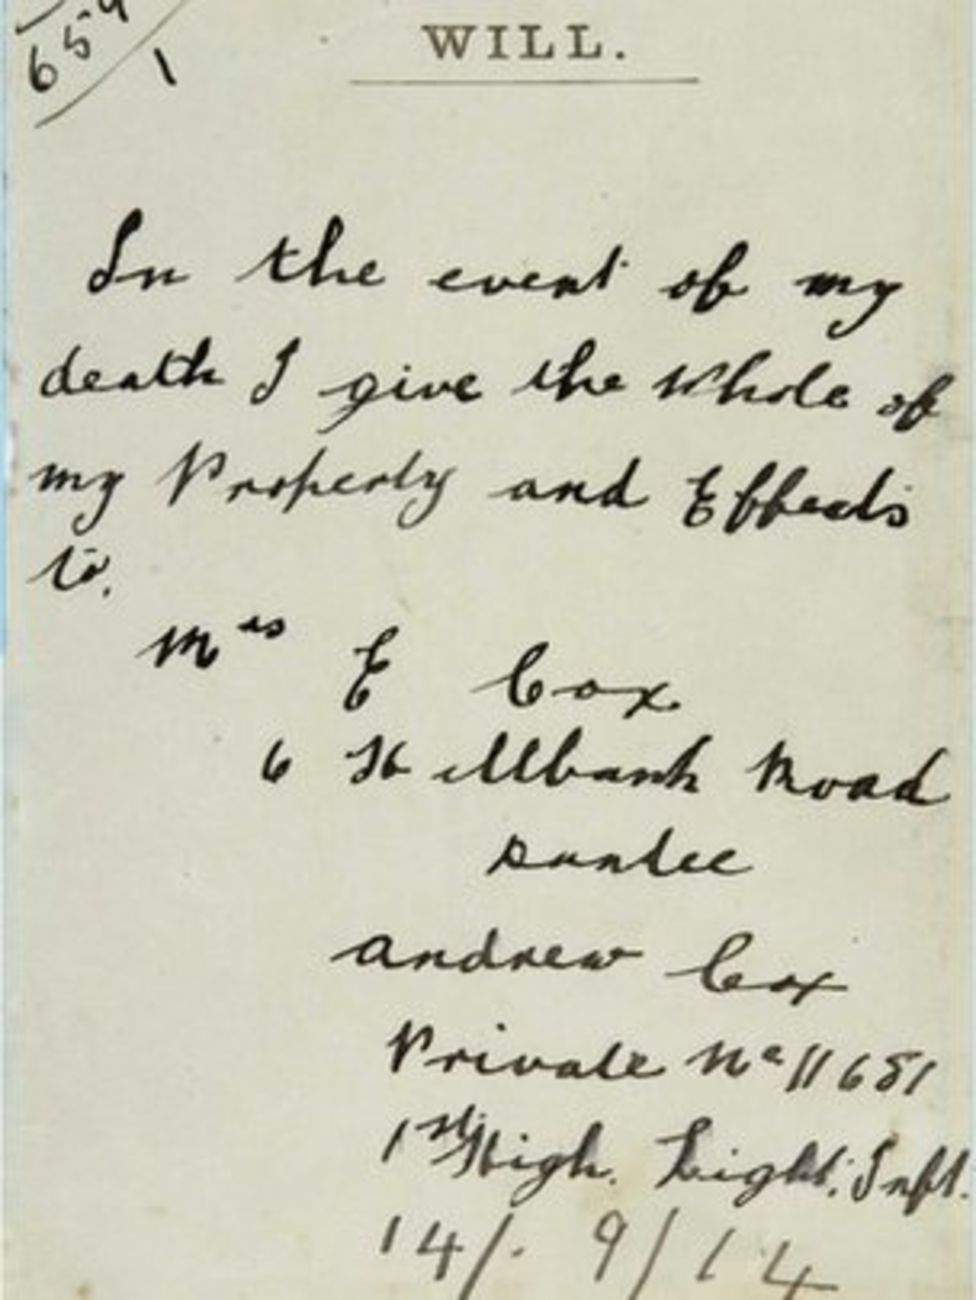 659
1
WILL.
In the event of my
death I give the Whole of
my Property and Effects
to.
Mrs E Cox
6 Hillbank Road
Dundee
Andrew Cox
Private No 11681
1st High. Light. Inft.
14/. 9/14